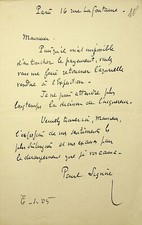 Paris 16 rue La Fontaine.
Monsieur
Puisqu'il m'est impossible
d'en toucher le payement, veuillez
vous me faire retourner l'aquarelle
vendue à l'Exposition
Je ne puis attendre plus
longtemps la décision de l'acquéreur.
Veuillez recevoir, Monsieur,
l'expression de mes sentiments les
plus distingués et mes excuses pour
le dérangement que je vous cause.
Paul Signac